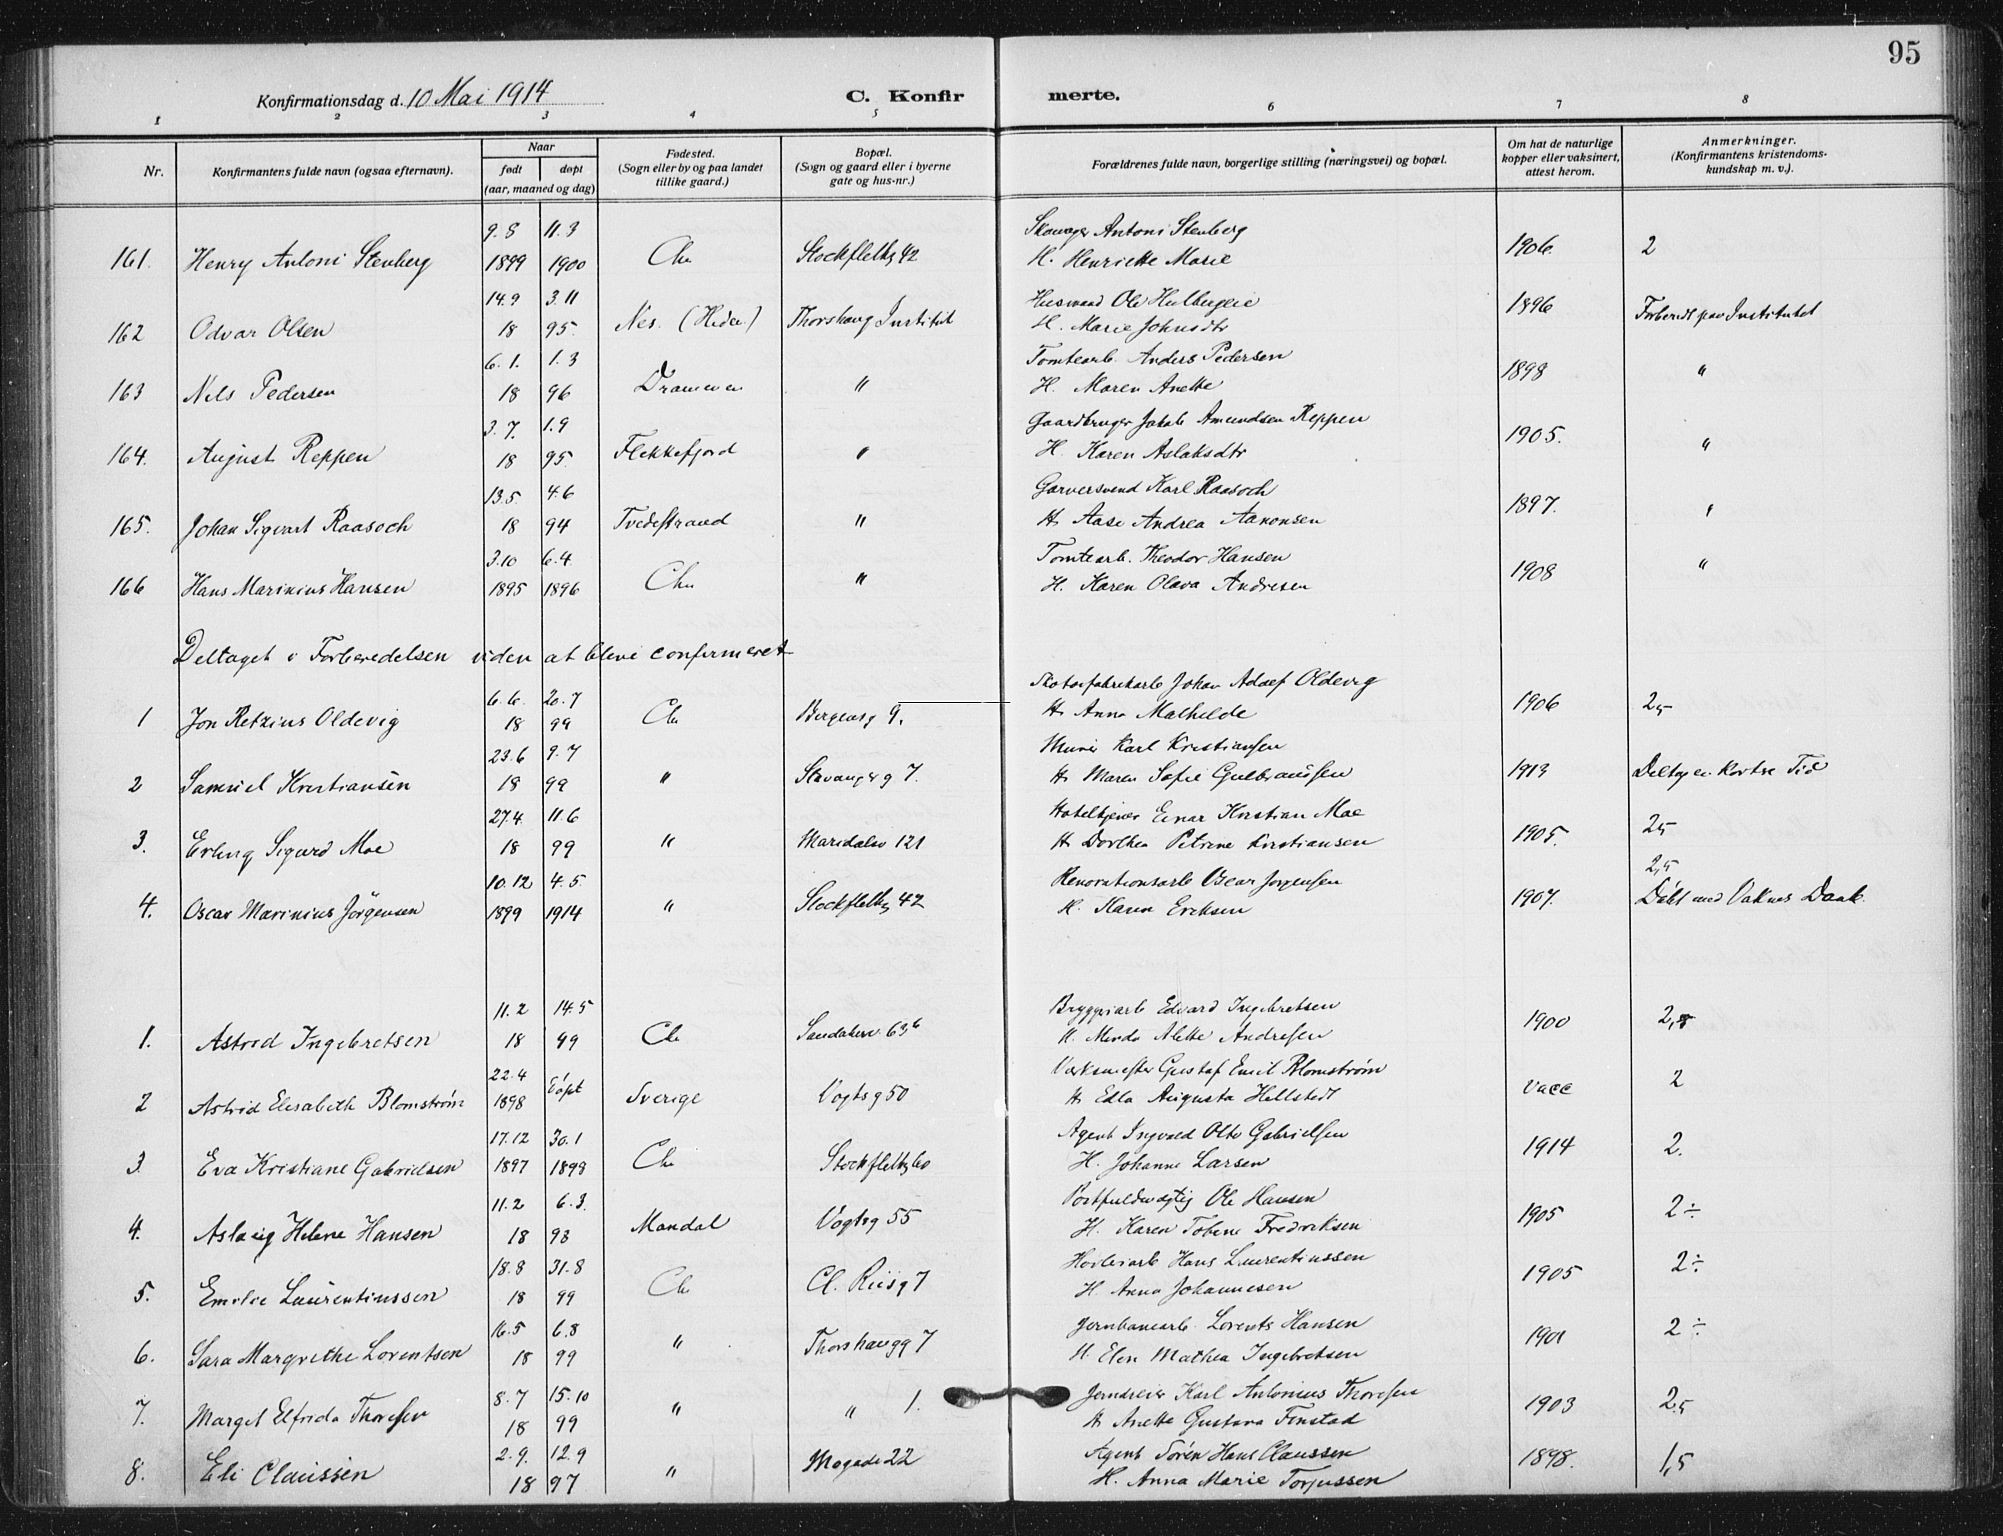 95
Konfirmationsdag d. 10 Mai 1914 C. Konfirmerte.
1 2 3 4 5 6 7 8
Nr. Konfirmantens fulde navn (ogsaa efternavn). Naar født døpt (aar, maaned og dag) Fødested. (Sogn eller by og paa landet tillike gaard.) Bopæl. (Sogn og gaard eller i byerne gate og hus-nr.) Forældrenes fulde navn, borgerlige stilling (næringsvei) og bopæl. Om hat de naturlige kopper eller vaksinert, attest herom. Anmerkninger. (Konfirmantens kristendoms-kundskap m. v.).
9.8 11.3 Antoni Stenberg
161. Henry Antoni Stenberg 1899 1900 Chr Stockfletsg 42 H. Henriette Marie 1906. 2
14.9 3.11 Husmand Ole
162 Odvar Olsen 18 95. Nes. (Hedm.) Thorshaug Institut H. Marie Johnsdtr 1896 Forberedt paa Institutet
6.1. 1.3 Tomtearb. Anders Pedersen
163 Nils Pedersen 18 96 Drammen " H. Maren Anette 1898 "
3.7. 1.9 Gaardbruger Jakob Amundsen Reppen
164. August Reppen 18 95. Flekkefjord " H. Karen Aslaksdtr 1905. "
13.5 4.6 Garversvend Karl Raasoch
165. Johan Sigvart Raasoch 18 94 Tvedestrand " H. Aase Andrea Aanonsen 1897. "
3.10 6.4 Tomtearb. Theodor Hansen
166 Hans Marinius Hansen 1895 1896 Chr " H. Karen Olava Andresen 1908 "
Deltaget i Forberedelsen uden at bleve confirmeret
6.6. 20.7 Johan Adolf Oldevig
1 Jon Retzius Oldevig 18 99 Chr Bergensg 9. H. Anna Mathilde 1906 25
23.6 9.7 Murer Karl Kristiansen
2 Samuel Kristiansen 18 99 " Stavangerg 7. H. Maren Sofie Gulbransen 1913 Deltog en kortere Tid
27.4. 11.6 Hoteltjener Einar Kristian Moe
3. Erling Sigurd Moe 18 99 " Maridalsv 121 H. Dorthea Petrine Kristiansen 1905. 25
10.12 4.5. Renovationsarb Oscar Jørgensen 2,5
4. Oscar Marinius Jörgensen 1899 1914 " Stockfletsg 42 H. Karen Eriksen 1907. Döbt med Voknes Daab.
11.2 14.5 Bryggeriarb Edvard Ingebretsen
1. Astrid Ingebretsen 18 99 Chr Sandakerv 63b H. Minda Alette Andresen 1900 2,5
22.4 Verksmester Gustaf Emil Blomstrøm
2 Astrid Elisabeth Blomstrøm 1898 döpt Sverige Vogtsg 50 H. Edla Augusta Hellstedt vacc 2
17.12 30.1 Agent Ingvald Otto Gabrielsen
3. Eva Kristiane Gabrielsen 1897 1898 Chr Stockfletsg 60 H. Johanne Larsen 1914 2.
11.2 6.3. Postfuldmægtig Ole Hansen
4. Aslaug Helene Hansen 18 98 Mandal Vogtsg 55 H. Karen Tobine Fredriksen 1905 2÷
18.8 31.8 Høvleriarb Hans Laurentiussen
5. Emilie Laurentiussen 18 99 Chr Cl. Riisg 7 H. Anna Johannesen 1905 2÷
16.5 6.8 Jernbanearb. Lorents Hansen
6. Sara Margrethe Lorentsen 18 99 " Thorshaugg 7 H. Elen Mathea Ingebretsen 1901 2÷
8.7 15.10 Jerndreier Karl Antonius Thoresen
7. Margit Elfrida Thoresen 18 99 " " 1. H. Anette Gustava Finstad 1903 25
2.9. 12.9 Agent Sören Hans Claussen
8. Eli Claussen 18 97 " Mogade 22 H. Anna Marie Torjussen 1898. 1,5